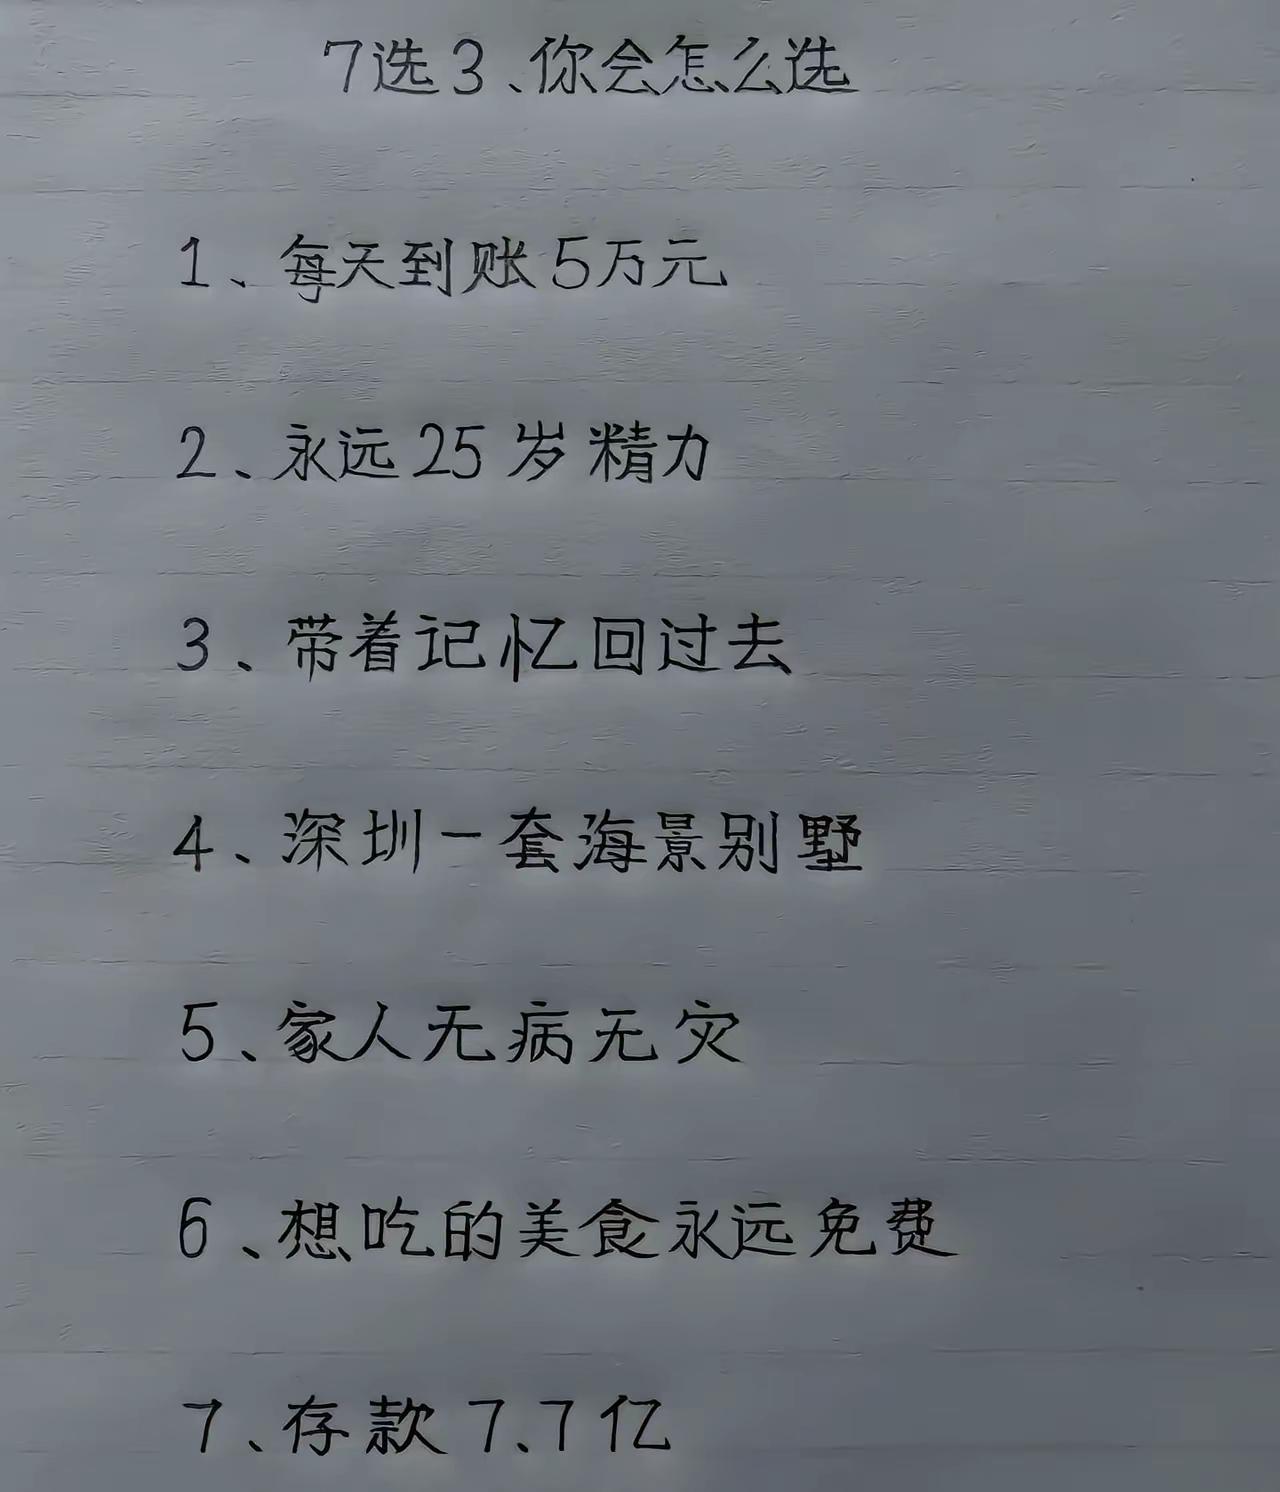 7选3、你会怎么选
1、每天到账5万元
2、永远25岁精力
3、带着记忆回过去
4、深圳一套海景别墅
5、家人无病无灾
6、想吃的美食永远免费
7、存款7.7亿